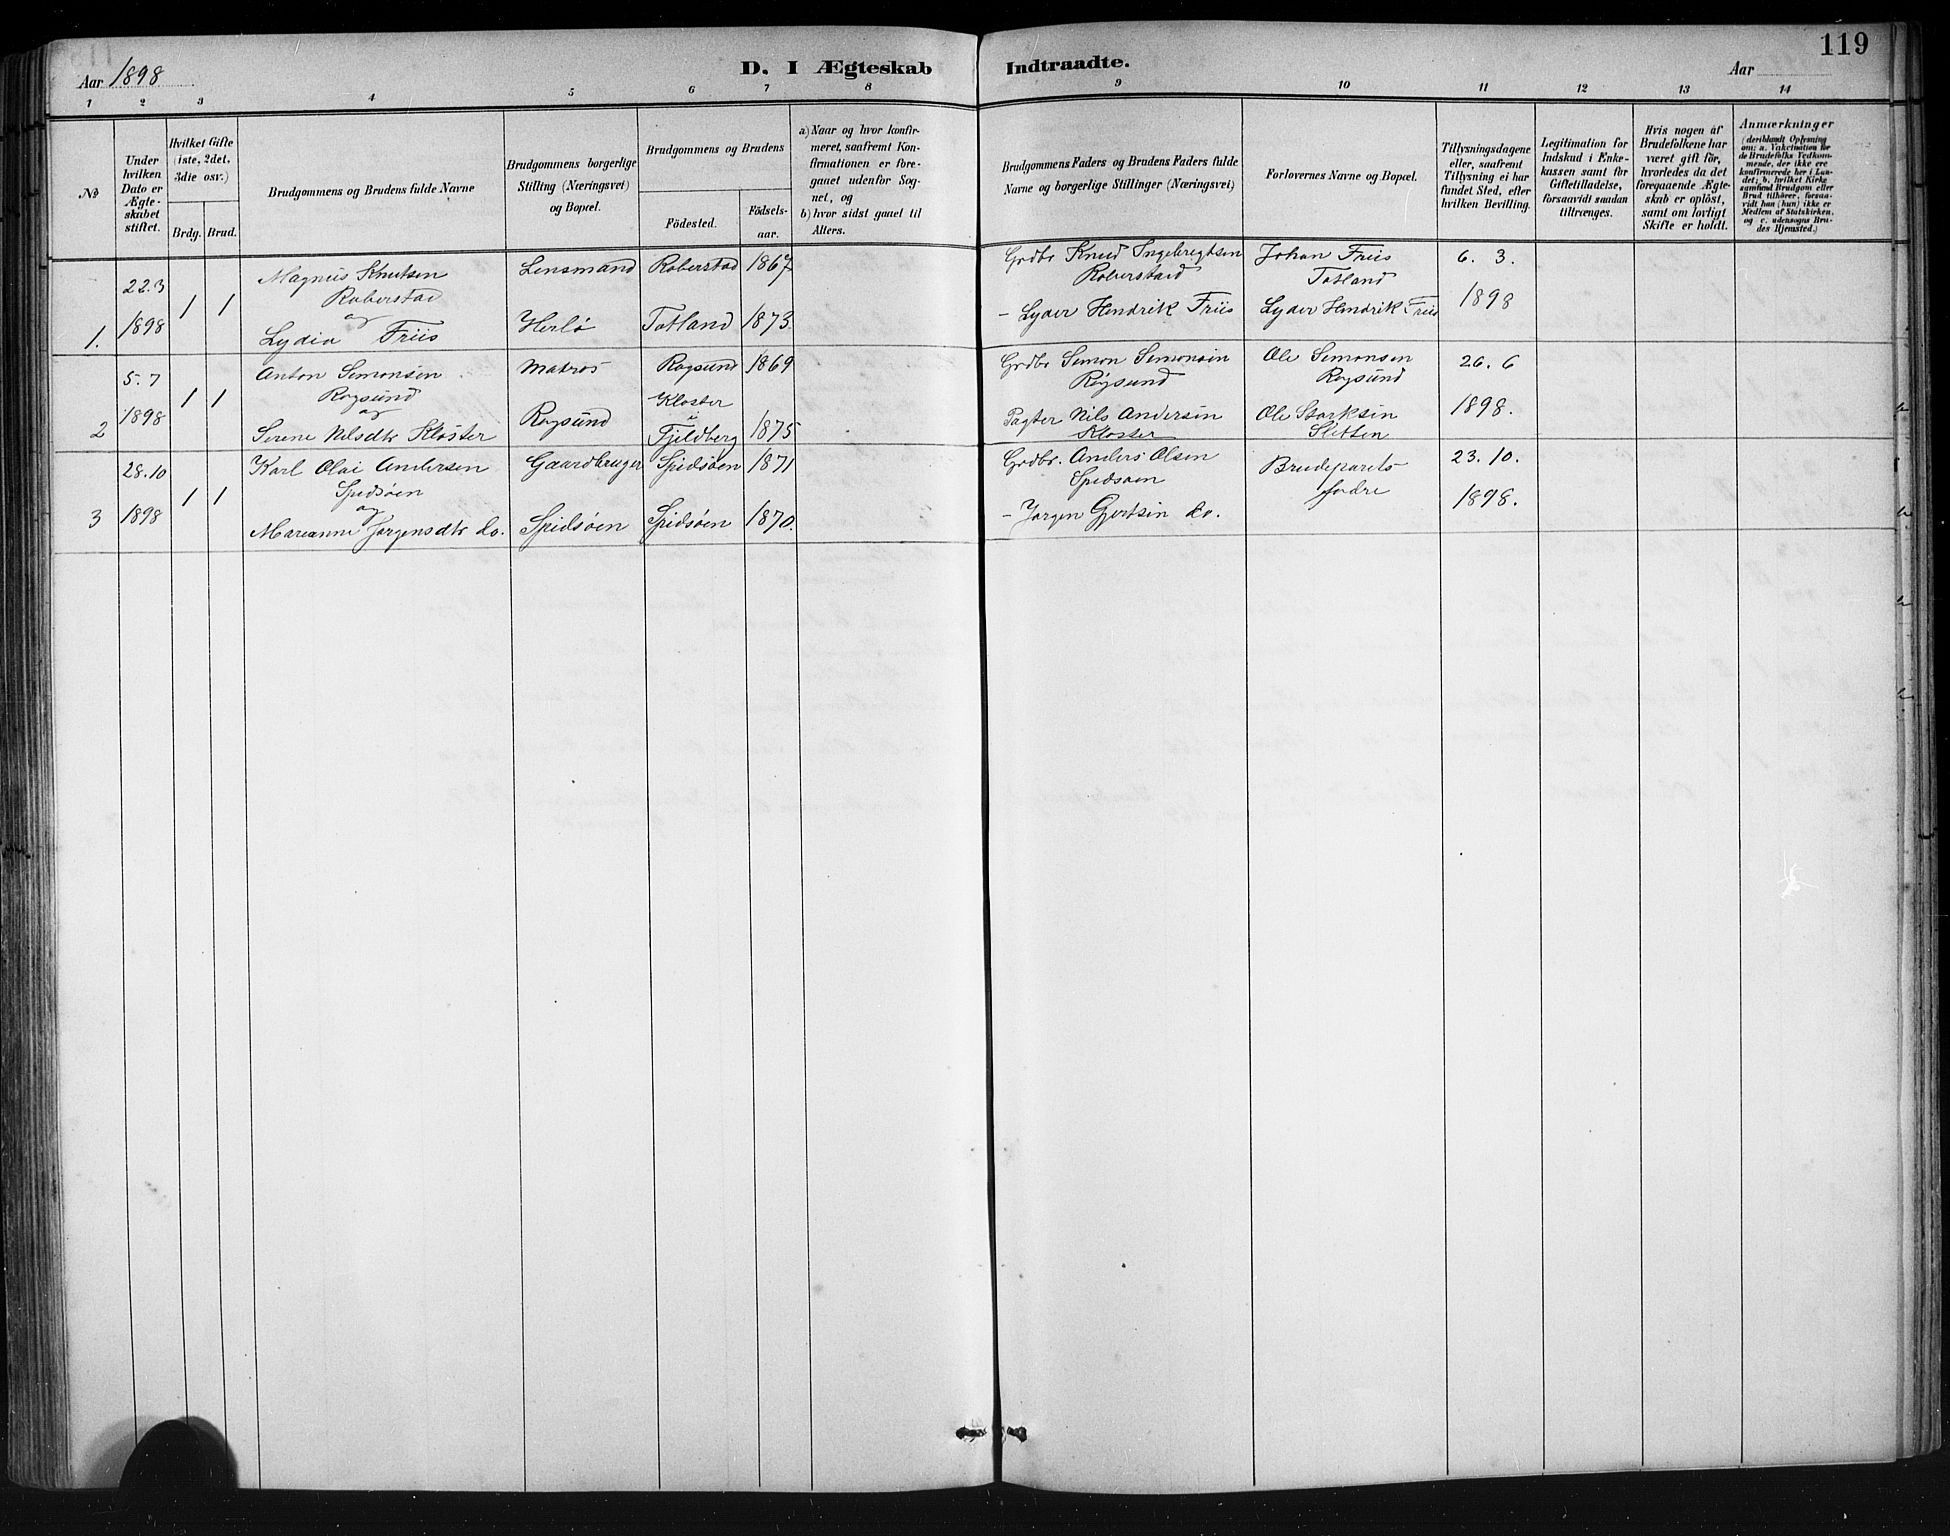 119
Aar 1898
D. I Ægteskab Indtraadte.
Aar
1 2 3 4 5 6 7 8 9 10 11 12 13 14
No
Under hvilken Dato er Ægteskabet stiftet.
Hvilket Gifte (1ste, 2det, 3die osv.)
Brdg. Brud.
Brudgommens og Brudens fulde Navne
Brudgommens borgerlige Stilling (Næringsvei) og Bopæl.
Brudgommens og Brudens
Födested.
Födselsaar.
a) Naar og hvor konfirmeret, saafremt Konfirmationen er foregaaet udenfor Sognet, og
b) hvor sidst gaaet til Alters.
Brudgommens Faders og Brudens Faders fulde Navne og borgerlige Stillinger (Næringsvei)
Forlovernes Navne og Bopæl.
Tillysningsdagene eller, saafremt Tillysning ei har fundet Sted, efter hvilken Bevilling.
Legitimation for Indskud i Enkekassen samt for Giftetilladelse, forsaavidt saadan tiltrænges.
Hvis nogen af Brudefolkene har været gift för, hvorledes da det foregaaende Ægteskab er oplöst, samt om lovligt Skifte er holdt.
Anmærkninger
(deriblandt Oplysning om: a. Vakcination for de Brudefolks Vedkommende, der ikke ere konfirmerede her i Landet; b. hvilket Kirkesamfund Brudgom eller Brud tilhörer, forsaavidt han (hun) ikke er Medlem af Statskirken, og c. udensogns Brudes Hjemsted.)
1. 22.3 1898 1 1
Magnus Knutsen
Roberstad
og
Lydia Friis
Lensmand
Herlö
Roberstad 1867
Totland 1873
Grdbr Knud Ingebregtsen
Roberstad
- Lyder Hendrik Friis
Johan Friis
Totland
Lyder Hendrik Friis
6. 3.
1898
2 5.7 1898 1 1
Anton Simonsen
Rogsund
og
Serene Nilsdtr Kloster
Matros
Rogsund
Rogsund 1869
Kloster
i
Fjeldberg 1875
Grdbr Simon Simonsen
Rögsund
Pagter Nils Andersen
Kloster
Ole Simonsen
Rogsund
Ole Storksen
Sletten
26. 6
1898.
3 28.10 1898 1 1
Karl Olai Andersen
Spidsöen
og
Marianne Jørgensdtr do.
Gaardbruger
Spidsöen
Spidsöen 1871
Spidsöen 1870.
Grdbr. Anders Olsen
Spidsøen
- Jørgen Gjertsen do.
Brudeparets
fædre
23. 10.
1898.